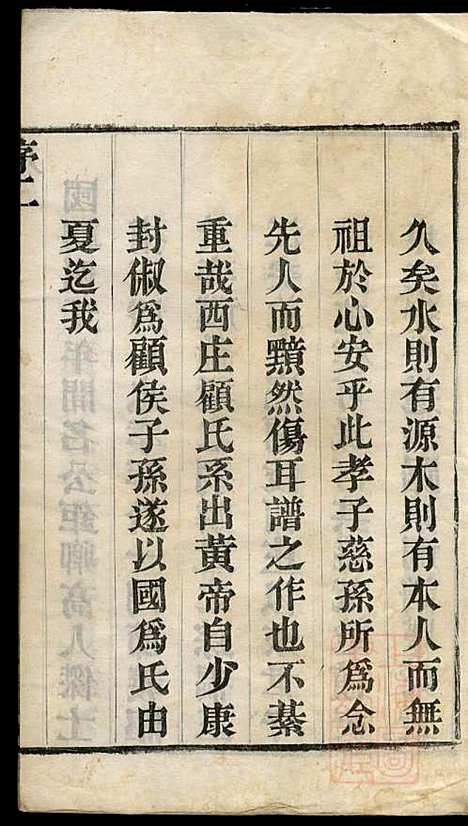 久矣水則有源木則有本人而無
祖於心安乎此孝子慈孫所爲念
先人而顙然傷耳譜之作也不綦
重哉西庄顧氏系出黃帝自少康
封俶爲顧侯子孫遂以國爲氏由
夏迄我
序二